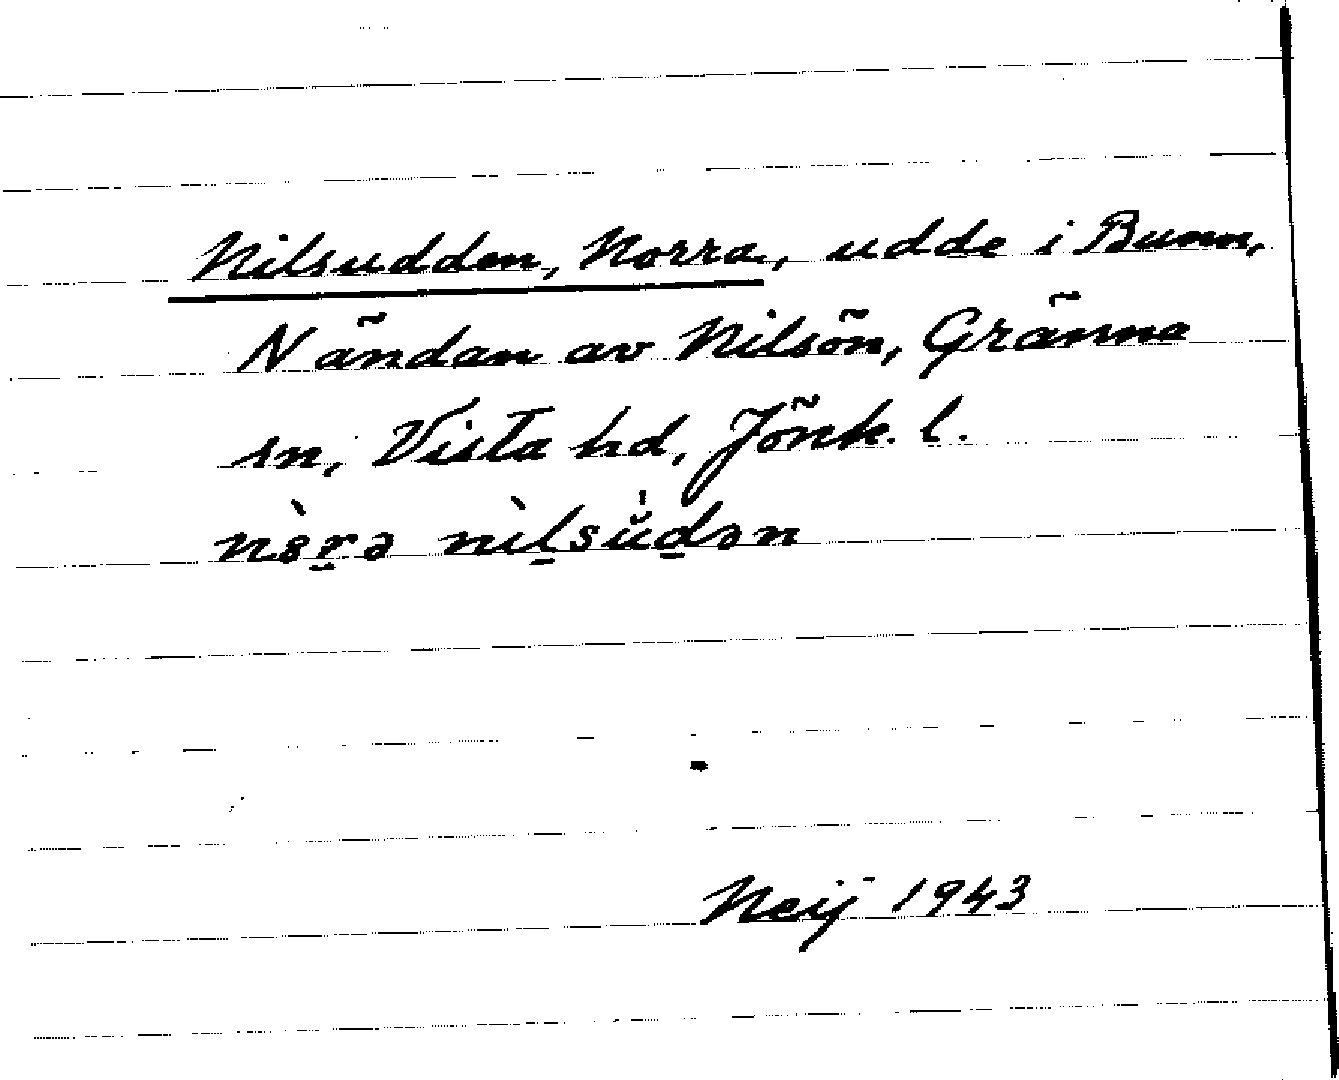 Nilsudden, Norra, udde i Bunn,
N ändan av Nilsön, Gränna
sn, Vista hd, Jönk. l.
nòr̠ə nìl̠sŭ̍d̠ən
Neij 1943